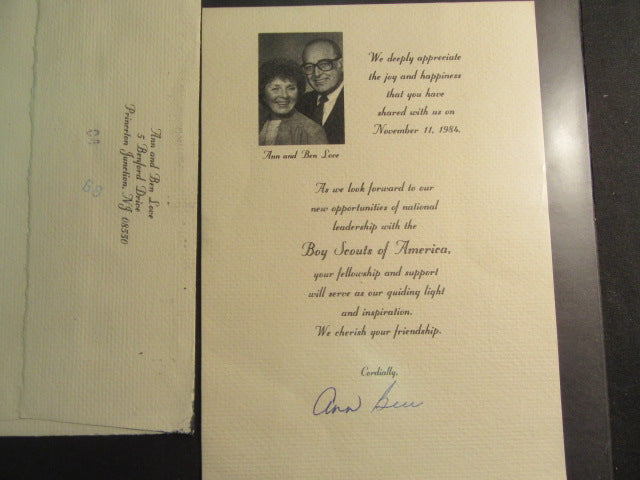 We deeply appreciate
the joy and happiness
that you have
shared with us on
November 11, 1984.
Ann and Ben Love
As we look forward to our
new opportunities of national
leadership with the
Boy Scouts of America,
your fellowship and support
will serve as our guiding light
and inspiration.
We cherish your friendship.
Cordially,
Ann Ben
Ann and Ben Love
5 Benford Drive
Princeton Junction, NJ 08550